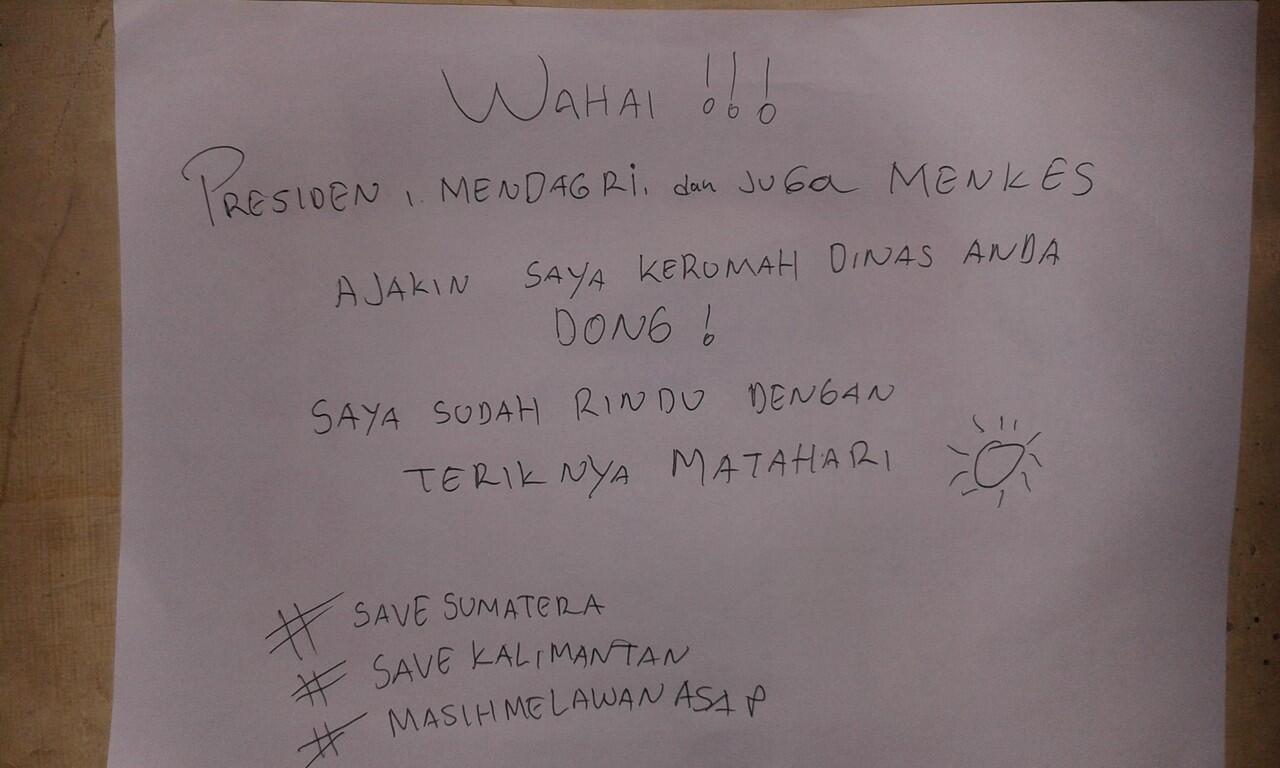 WAHAI !!!
PRESIDEN , MENDAGRI, dan JUGA MENKES
AJAKIN SAYA KERUMAH DINAS ANDA
DONG !
SAYA SUDAH RINDU DENGAN
TERIKNYA MATAHARI
# SAVE SUMATERA
# SAVE KALIMANTAN
# MASIHMELAWANASAP